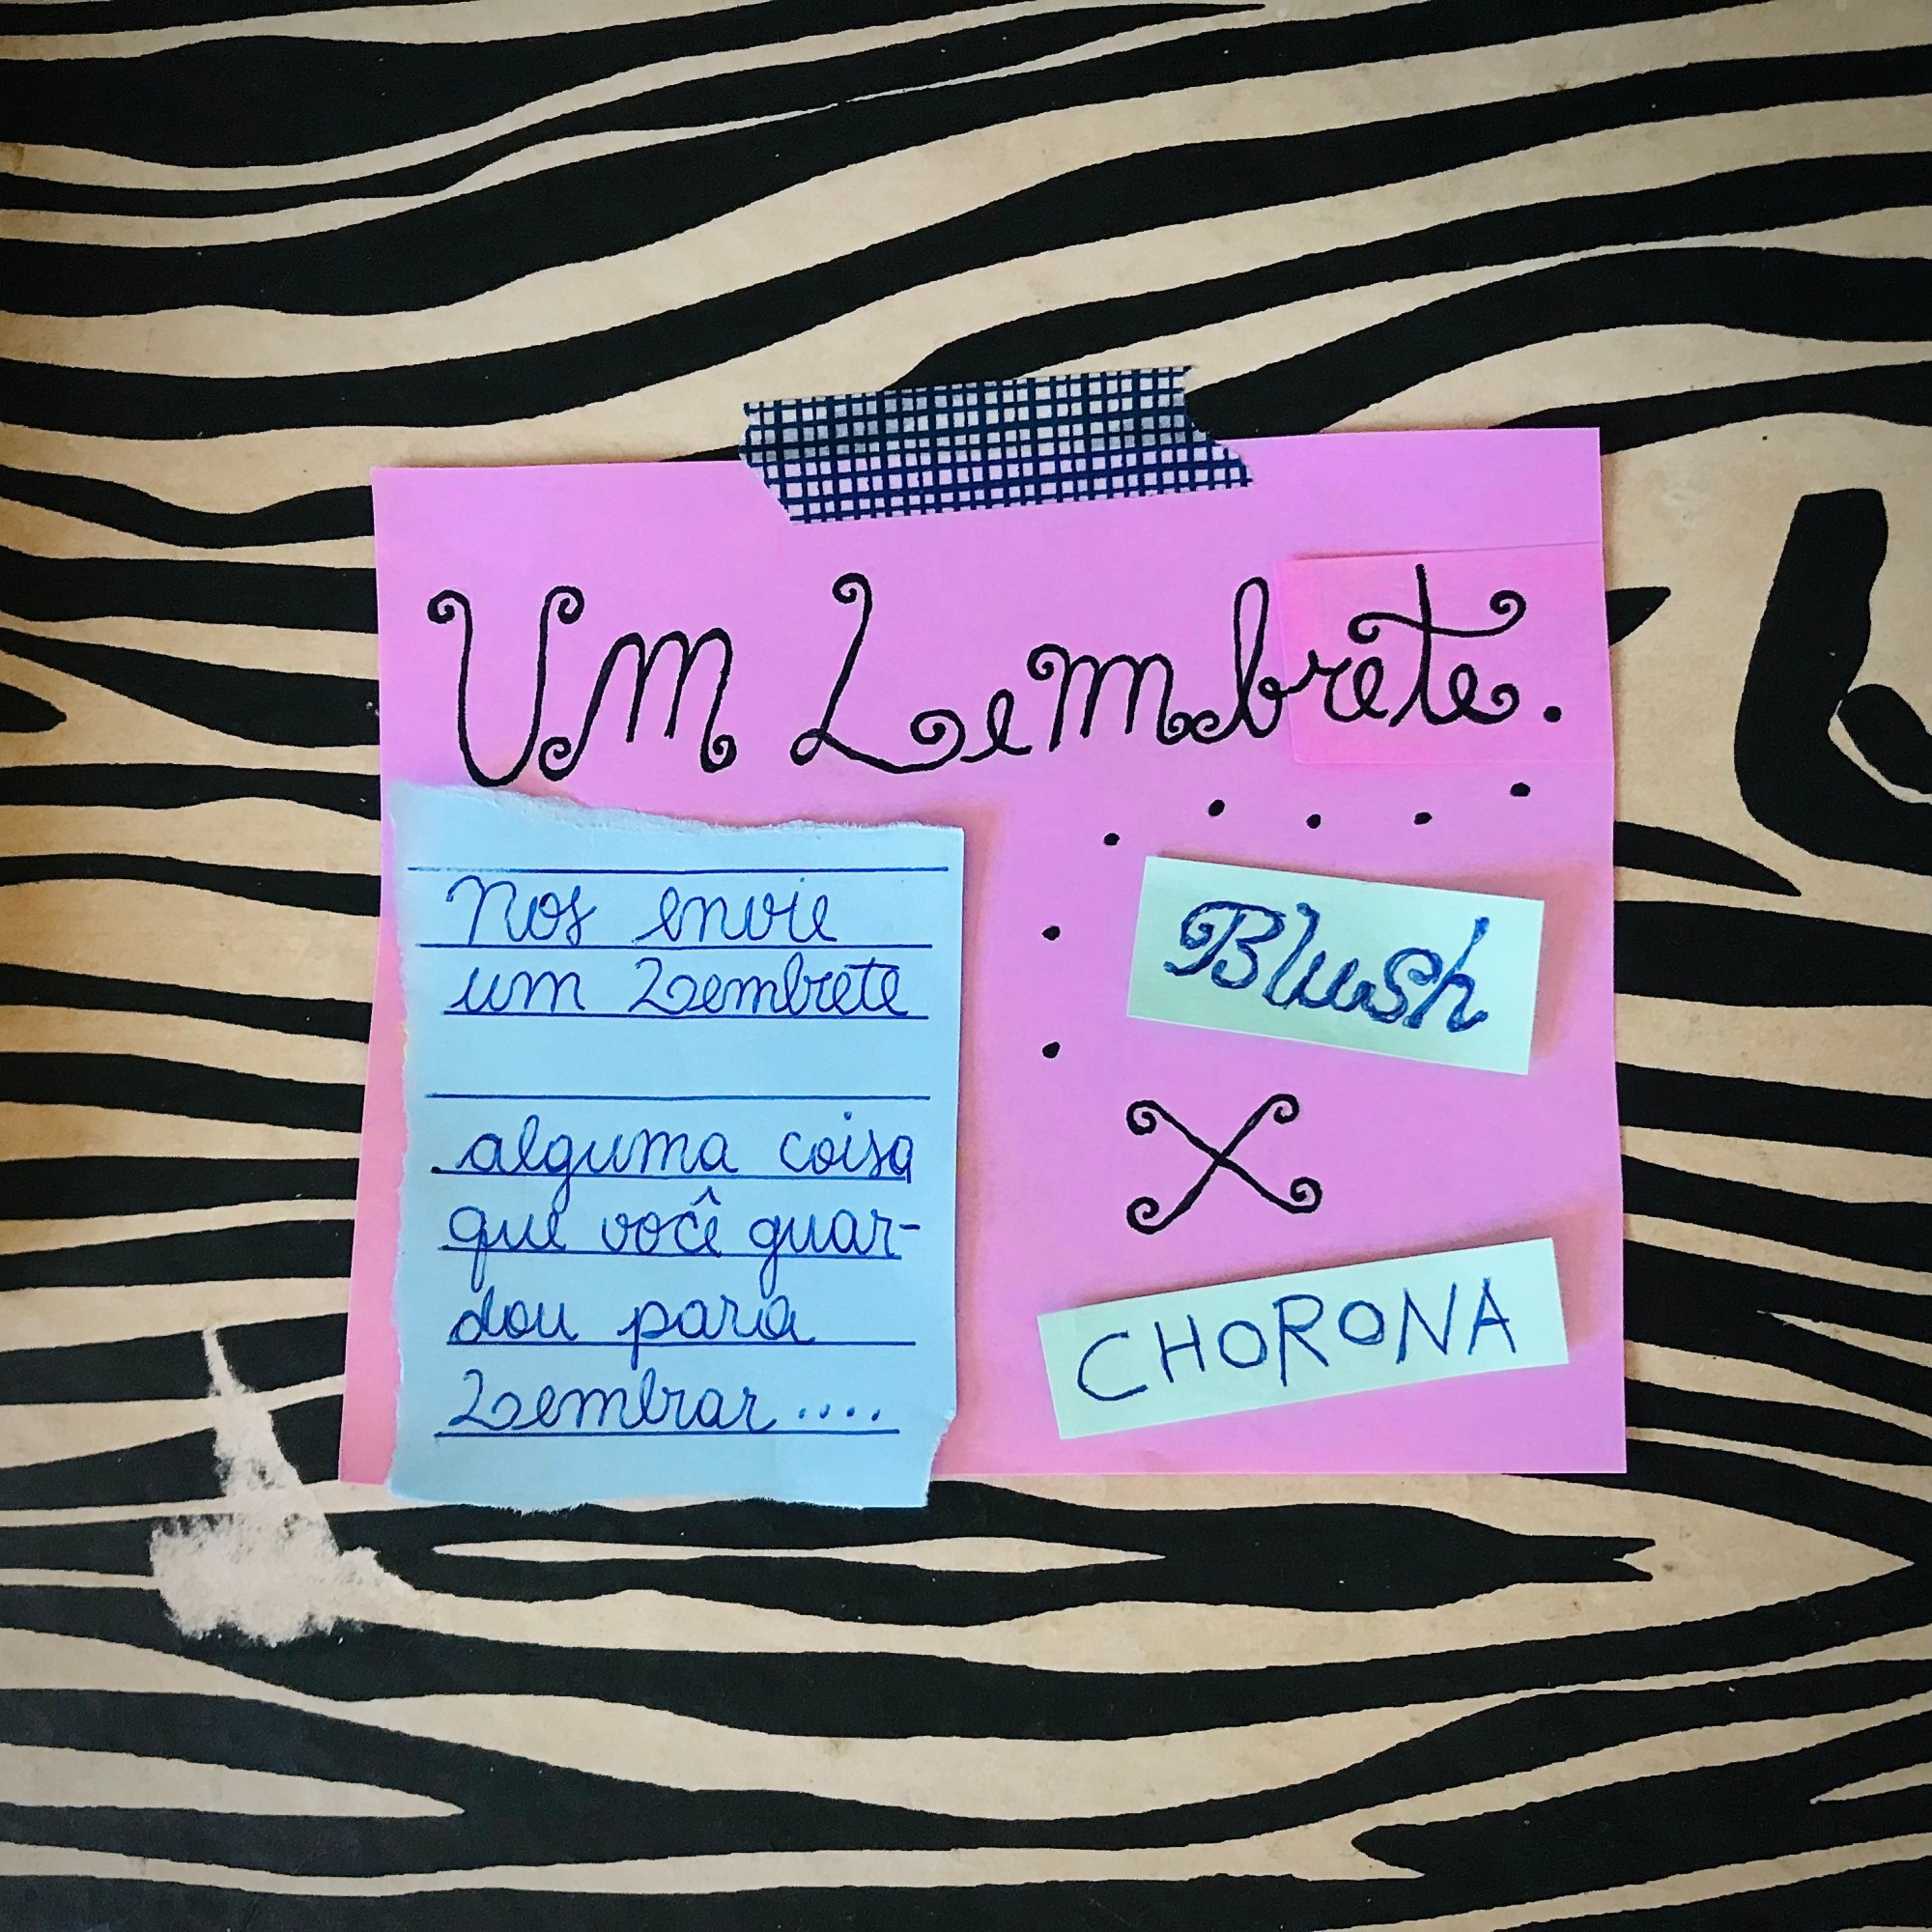 Um Lembrete.
Nos envie
um Lembrete
alguma coisa
que você guar-
dou para
Lembrar....
Blush
X
CHORONA